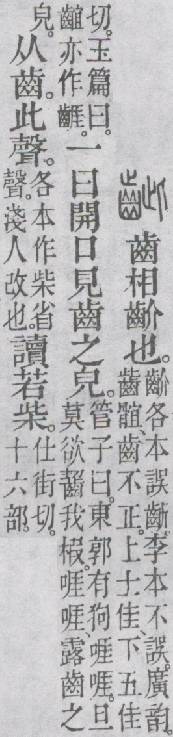 齒相齘也。
齘各本誤齗。李本不誤。廣韵
齒不正。上士佳、下五佳
切。玉篇曰。
亦作
一曰開口見齒之皃。
管子曰。東郭有狗啀啀。旦
莫欲齧我猳。啀啀、露齒之
皃。
从齒。此聲。
各本作柴省
聲。淺人改也。
讀若柴。
仕街切。
十六部。